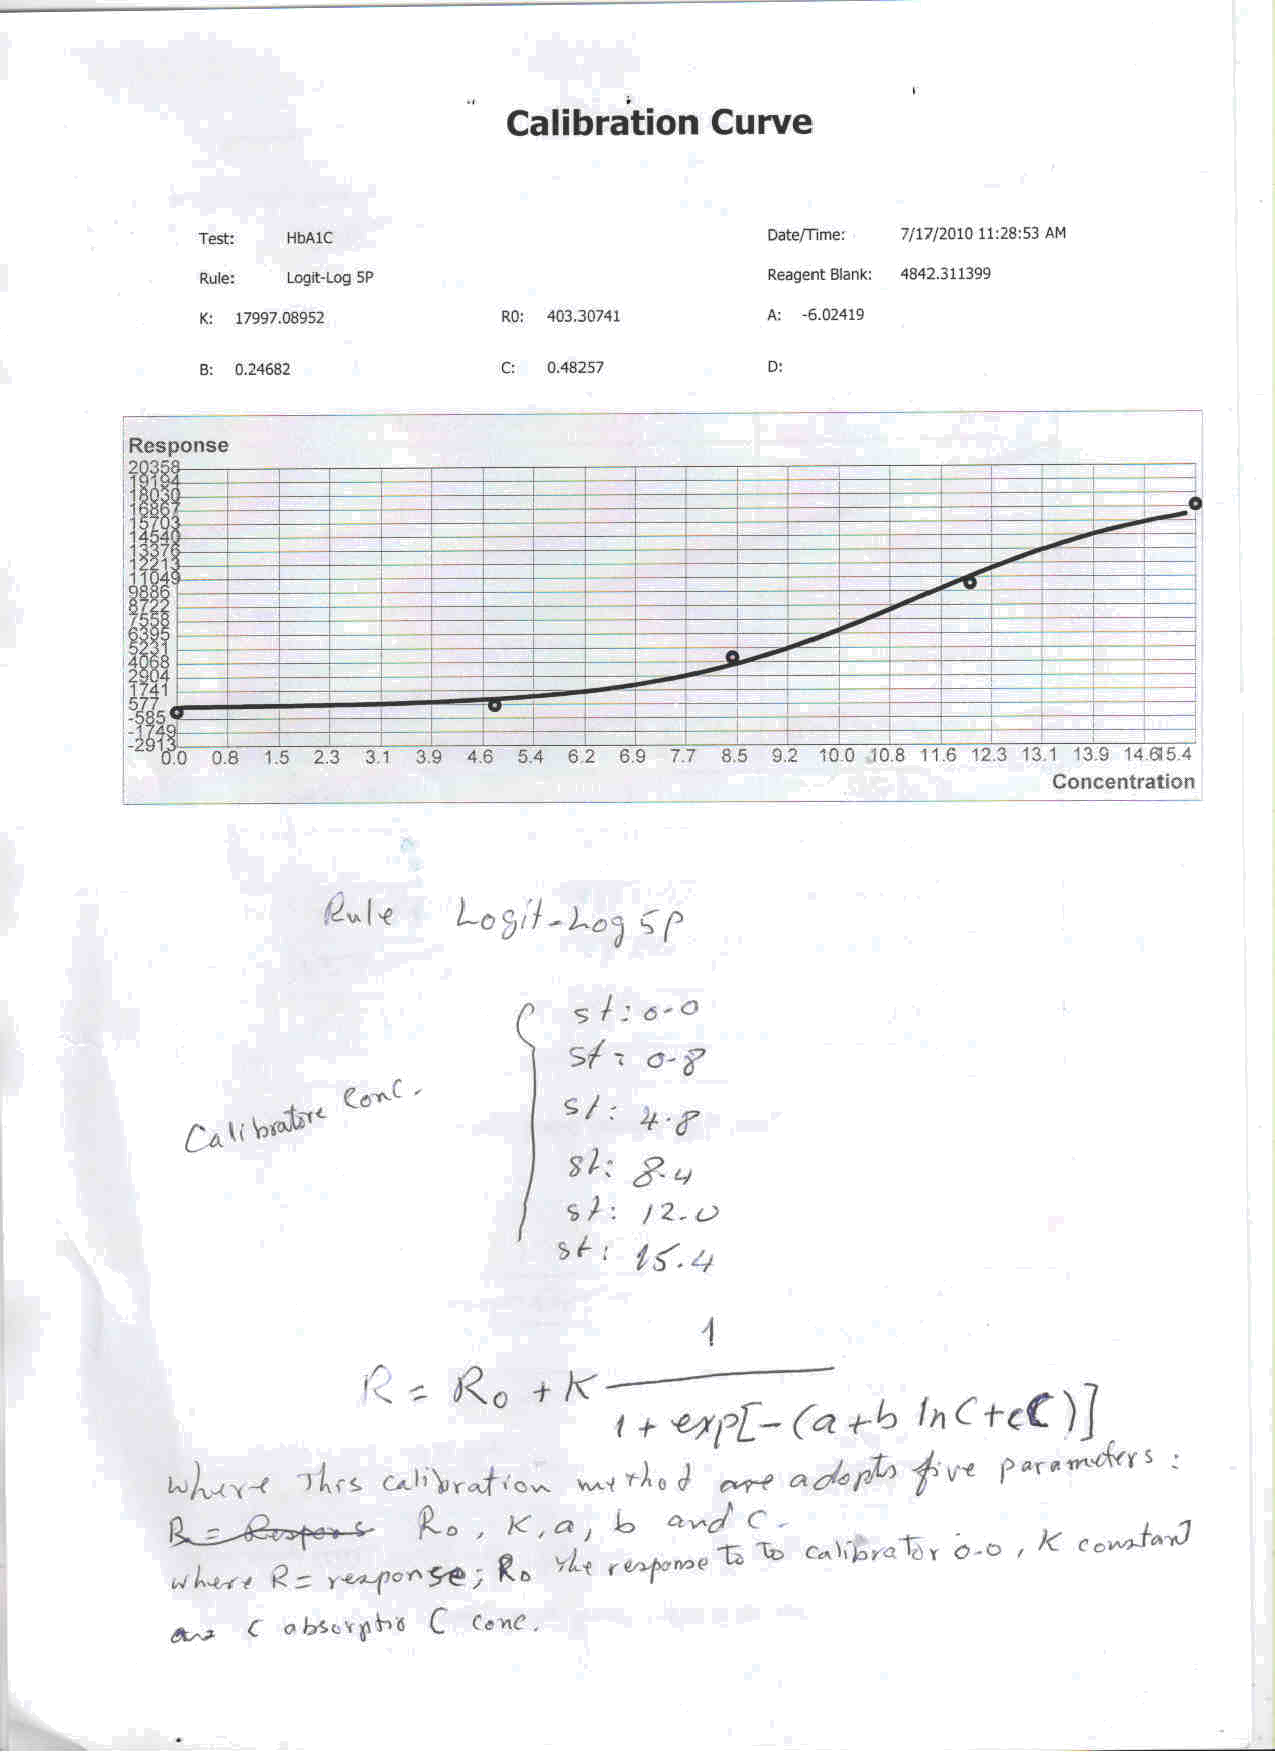 Calibration Curve
Test: HbA1C Date/Time: 7/17/2010 11:28:53 AM
Rule: Logit-Log 5P Reagent Blank: 4842.311399
K: 17997.08952 R0: 403.30741 A: -6.02419
B: 0.24682 C: 0.48257 D:
Response
20358
19194
18030
16867
15703
14540
13376
12213
11049
9886
8722
7558
6395
5231
4068
2904
1741
577
-585
-1749
-2913
0.0 0.8 1.5 2.3 3.1 3.9 4.6 5.4 6.2 6.9 7.7 8.5 9.2 10.0 10.8 11.6 12.3 13.1 13.9 14.6 15.4
Concentration
Rule Logit-Log 5P
st: 0.0
st: 0.8
Calibratore Conc.
st: 4.8
st: 8.4
st: 12.0
st: 15.4
R = R0 + K 1 / 1 + exp[-(a+b lnC+cC)]
where This calibration method are adopts five parameters:
R = Respons R0, K, a, b and C.
where R = response; R0 the response to To calibrator 0.0, K constant
C absorptio C conc.